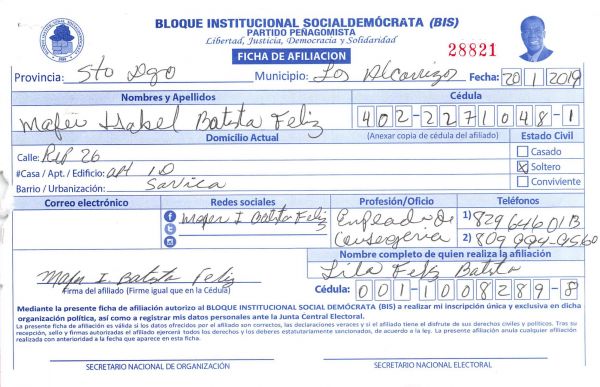 BLOQUE INSTITUCIONAL SOCIALDEMÓCRATA (BIS)
PARTIDO PEÑAGOMISTA
Libertad, Justicia, Democracia y Solidaridad
FICHA DE AFILIACION
28821
Provincia: Sto Dgo Municipio: Los Alcarrizos Fecha: 20/1/2019
Nombres y Apellidos Cédula
Isabel Batista Feliz 402-2271048-1
Domicilio Actual (Anexar copia de cédula del afiliado) Estado Civil
Calle: Rep 26 Casado
#Casa / Apt. / Edificio: apt 1D X Soltero
Barrio / Urbanización: Savica Conviviente
Correo electrónico Redes sociales Profesión/Oficio Teléfonos
I Batista Feliz Empleada De 1) 829 646
Conserjeria 2) 809 994-9560
Nombre completo de quien realiza la afiliación
I Batista Feliz Lila Feliz Batista
Firma del afiliado (Firme igual que en la Cédula) Cédula: 001-1008289-8
Mediante la presente ficha de afiliación autorizo al BLOQUE INSTITUCIONAL SOCIAL DEMÓCRATA (BIS) a realizar mi inscripción única y exclusiva en dicha
organización política, así como a registrar mis datos personales ante la Junta Central Electoral.
La presente ficha de afiliación es válida si los datos ofrecidos por el afiliado son correctos, las declaraciones veraces y si el afiliado tiene el disfrute de sus derechos civiles y políticos. Tras su
recepción, sello y firmas autorizadas el afiliado ejercerá todos los derechos y los deberes estatutariamente sancionados, de acuerdo a la ley. La presente afiliación anula cualquier afiliación
realizada con anterioridad a la fecha que aparece en esta ficha.
SECRETARIO NACIONAL DE ORGANIZACIÓN SECRETARIO NACIONAL ELECTORAL